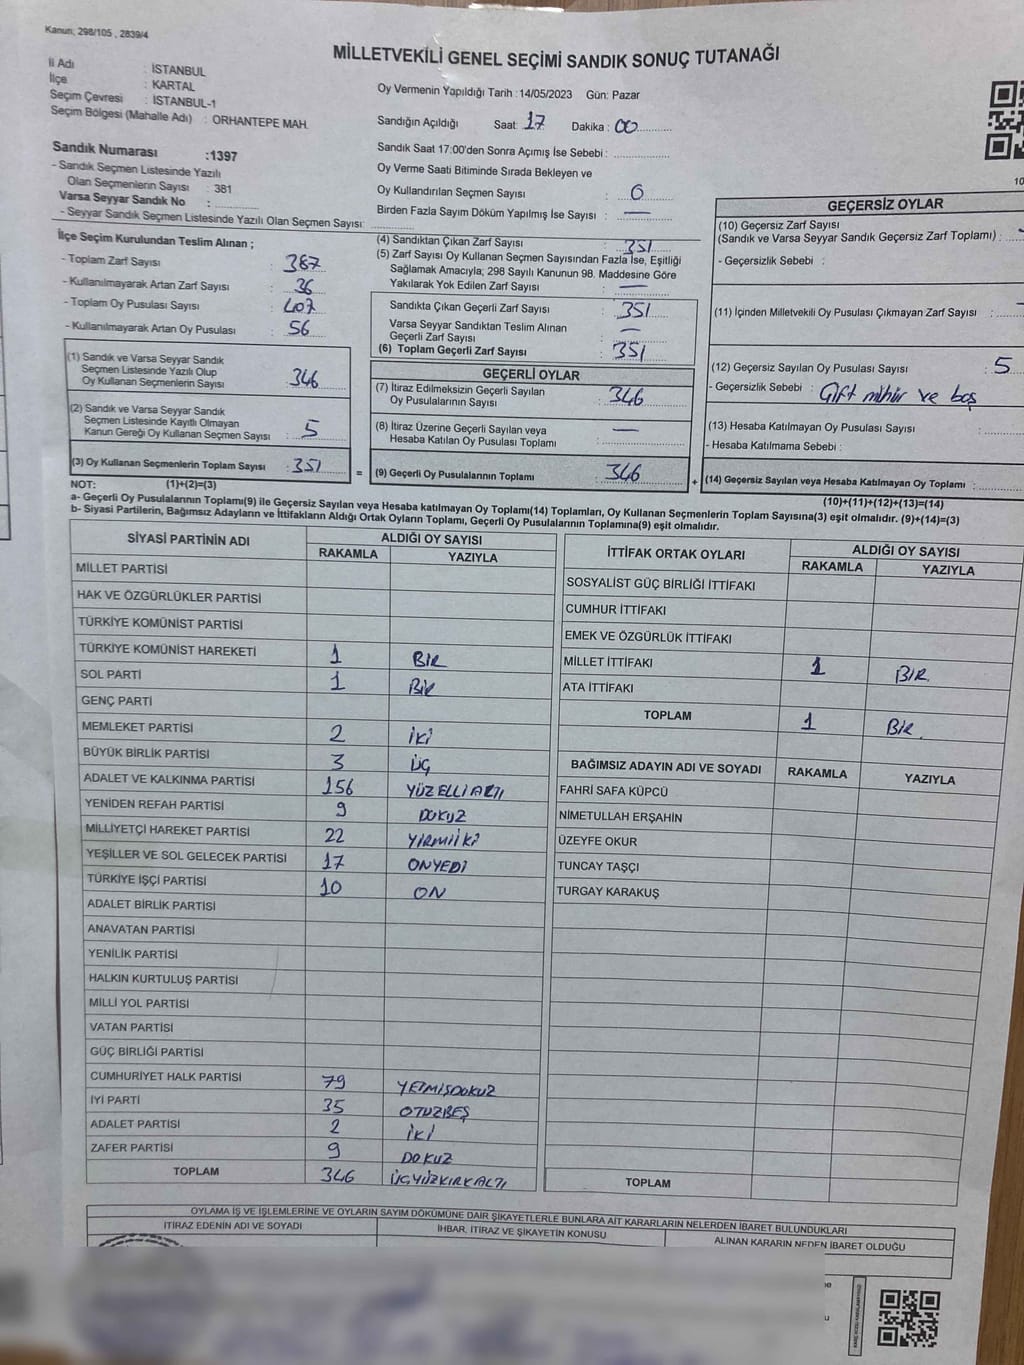 Kanun, 298/105 , 2839/4
MİLLETVEKİLİ GENEL SEÇİMİ SANDIK SONUÇ TUTANAĞI
İl Adı : İSTANBUL
İlçe : KARTAL
Seçim Çevresi : İSTANBUL-1
Seçim Bölgesi (Mahalle Adı) : ORHANTEPE MAH.
Sandık Numarası :1397
- Sandık Seçmen Listesinde Yazılı
Olan Seçmenlerin Sayısı : 381
Varsa Seyyar Sandık No :
- Seyyar Sandık Seçmen Listesinde Yazılı Olan Seçmen Sayısı:
Oy Vermenin Yapıldığı Tarih :14/05/2023 Gün: Pazar
Sandığın Açıldığı Saat: 17 Dakika : 00
Sandık Saat 17:00'den Sonra Açımış İse Sebebi :
Oy Verme Saati Bitiminde Sırada Bekleyen ve
Oy Kullandırılan Seçmen Sayısı : 0
Birden Fazla Sayım Döküm Yapılmış İse Sayısı : —
İlçe Seçim Kurulundan Teslim Alınan ;
- Toplam Zarf Sayısı : 387
- Kullanılmayarak Artan Zarf Sayısı : 36
- Toplam Oy Pusulası Sayısı : 407
- Kullanılmayarak Artan Oy Pusulası : 56
(1) Sandık ve Varsa Seyyar Sandık
Seçmen Listesinde Yazılı Olup
Oy Kullanan Seçmenlerin Sayısı : 346
(2) Sandık ve Varsa Seyyar Sandık
Seçmen Listesinde Kayıtlı Olmayan
Kanun Gereği Oy Kullanan Seçmen Sayısı : 5
(3) Oy Kullanan Seçmenlerin Toplam Sayısı : 351
(4) Sandıktan Çıkan Zarf Sayısı : 351
(5) Zarf Sayısı Oy Kullanan Seçmen Sayısından Fazla İse, Eşitliği
Sağlamak Amacıyla; 298 Sayılı Kanunun 98. Maddesine Göre
Yakılarak Yok Edilen Zarf Sayısı : —
Sandıkta Çıkan Geçerli Zarf Sayısı : 351
Varsa Seyyar Sandıktan Teslim Alınan
Geçerli Zarf Sayısı : —
(6) Toplam Geçerli Zarf Sayısı : 351
GEÇERLİ OYLAR
(7) İtiraz Edilmeksizin Geçerli Sayılan
Oy Pusulalarının Sayısı : 346
(8) İtiraz Üzerine Geçerli Sayılan veya
Hesaba Katılan Oy Pusulası Toplamı : —
= (9) Geçerli Oy Pusulalarının Toplamı : 346
GEÇERSİZ OYLAR
(10) Geçersiz Zarf Sayısı
(Sandık ve Varsa Seyyar Sandık Geçersiz Zarf Toplamı) :
- Geçersizlik Sebebi :
(11) İçinden Milletvekili Oy Pusulası Çıkmayan Zarf Sayısı :
(12) Geçersiz Sayılan Oy Pusulası Sayısı : 5
- Geçersizlik Sebebi : Çift mühür ve boş
(13) Hesaba Katılmayan Oy Pusulası Sayısı :
- Hesaba Katılmama Sebebi :
+ (14) Geçersiz Sayılan veya Hesaba Katılmayan Oy Toplamı :
NOT: (1)+(2)=(3)
(10)+(11)+(12)+(13)=(14)
a- Geçerli Oy Pusulalarının Toplamı(9) ile Geçersiz Sayılan veya Hesaba katılmayan Oy Toplamı(14) Toplamları, Oy Kullanan Seçmenlerin Toplam Sayısına(3) eşit olmalıdır. (9)+(14)=(3)
b- Siyasi Partilerin, Bağımsız Adayların ve İttifakların Aldığı Ortak Oyların Toplamı, Geçerli Oy Pusulalarının Toplamına(9) eşit olmalıdır.
SİYASİ PARTİNİN ADI ALDIĞI OY SAYISI
RAKAMLA YAZIYLA
MİLLET PARTİSİ
HAK VE ÖZGÜRLÜKLER PARTİSİ
TÜRKİYE KOMÜNİST PARTİSİ
TÜRKİYE KOMÜNİST HAREKETİ 1 BİR
SOL PARTİ 1 BİR
GENÇ PARTİ
MEMLEKET PARTİSİ 2 İKİ
BÜYÜK BİRLİK PARTİSİ 3 ÜÇ
ADALET VE KALKINMA PARTİSİ 156 YÜZELLİALTI
YENİDEN REFAH PARTİSİ 9 DOKUZ
MİLLİYETÇİ HAREKET PARTİSİ 22 YİRMİİKİ
YEŞİLLER VE SOL GELECEK PARTİSİ 17 ONYEDİ
TÜRKİYE İŞÇİ PARTİSİ 10 ON
ADALET BİRLİK PARTİSİ
ANAVATAN PARTİSİ
YENİLİK PARTİSİ
HALKIN KURTULUŞ PARTİSİ
MİLLİ YOL PARTİSİ
VATAN PARTİSİ
GÜÇ BİRLİĞİ PARTİSİ
CUMHURİYET HALK PARTİSİ 79 YETMİŞDOKUZ
İYİ PARTİ 35 OTUZBEŞ
ADALET PARTİSİ 2 İKİ
ZAFER PARTİSİ 9 DOKUZ
TOPLAM 346 ÜÇYÜZKIRKALTI
İTTİFAK ORTAK OYLARI ALDIĞI OY SAYISI
RAKAMLA YAZIYLA
SOSYALİST GÜÇ BİRLİĞİ İTTİFAKI
CUMHUR İTTİFAKI
EMEK VE ÖZGÜRLÜK İTTİFAKI
MİLLET İTTİFAKI 1 BİR.
ATA İTTİFAKI
TOPLAM 1 BİR.
BAĞIMSIZ ADAYIN ADI VE SOYADI RAKAMLA YAZIYLA
FAHRİ SAFA KÜPCÜ
NİMETULLAH ERŞAHİN
ÜZEYFE OKUR
TUNCAY TAŞÇI
TURGAY KARAKUŞ
TOPLAM
OYLAMA İŞ VE İŞLEMLERİNE VE OYLARIN SAYIM DÖKÜMÜNE DAİR ŞİKAYETLERLE BUNLARA AİT KARARLARIN NELERDEN İBARET BULUNDUKLARI
İTİRAZ EDENİN ADI VE SOYADI İHBAR, İTİRAZ VE ŞİKAYETİN KONUSU ALINAN KARARIN NEDEN İBARET OLDUĞU